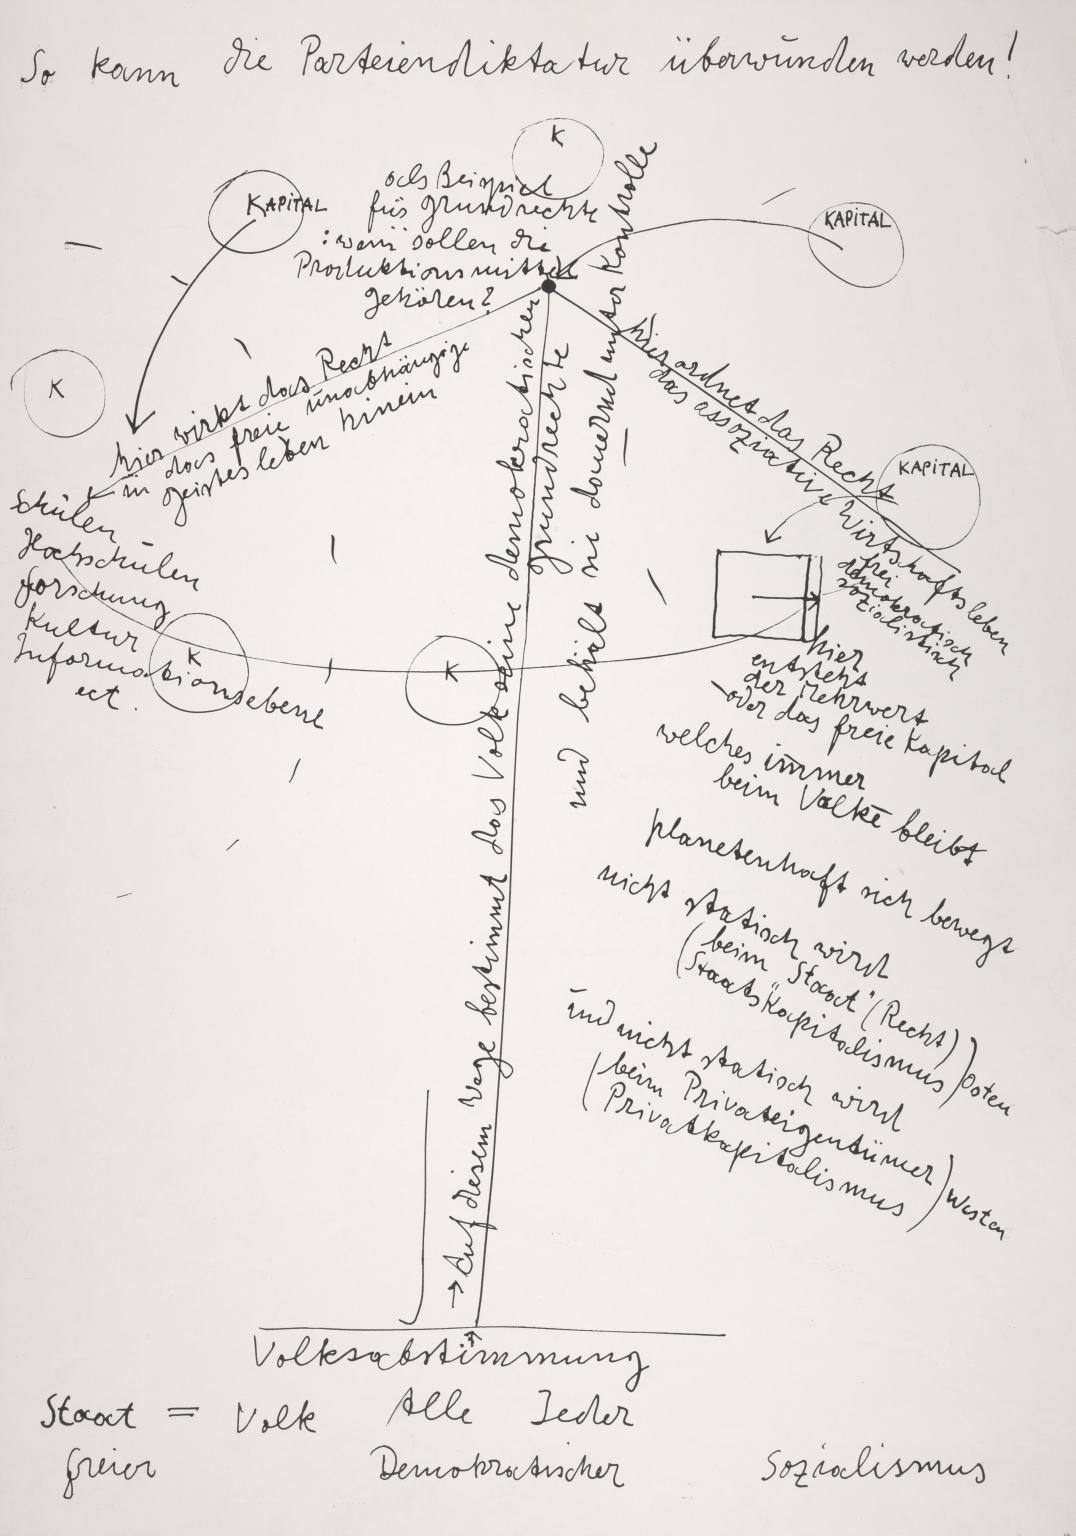 So kann die Parteiendiktatur überwunden werden!
K
KAPITAL
als Beispiel
für Grundrechte
: wem sollen die
Produktionsmittel
gehören?
KAPITAL
K
hier wirkt das Recht
in das freie unabhängige
Geistesleben hinein
Schulen
Hochschulen
Forschung
Kultur
Informationsebene
ect.
K
K
→ Auf diesem Wege bestimmt das Volk seine demokratischen
Grundrechte
und behält sie dauernd unter Kontrolle
hier ordnet das Recht
das assoziative Wirtschaftsleben
KAPITAL
frei
demokratisch
sozialistisch
hier
entsteht
der Mehrwert
oder das freie Kapital
welches immer
beim Volke bleibt
planetenhaft sich bewegt
nicht statisch wird
(beim "Staat" (Recht)
(Staatskapitalismus) Osten
und nicht statisch wird
(beim Privateigentümer
(Privatkapitalismus) Westen
Volksabstimmung
Staat = Volk Alle Jeder
freier Demokratischer Sozialismus